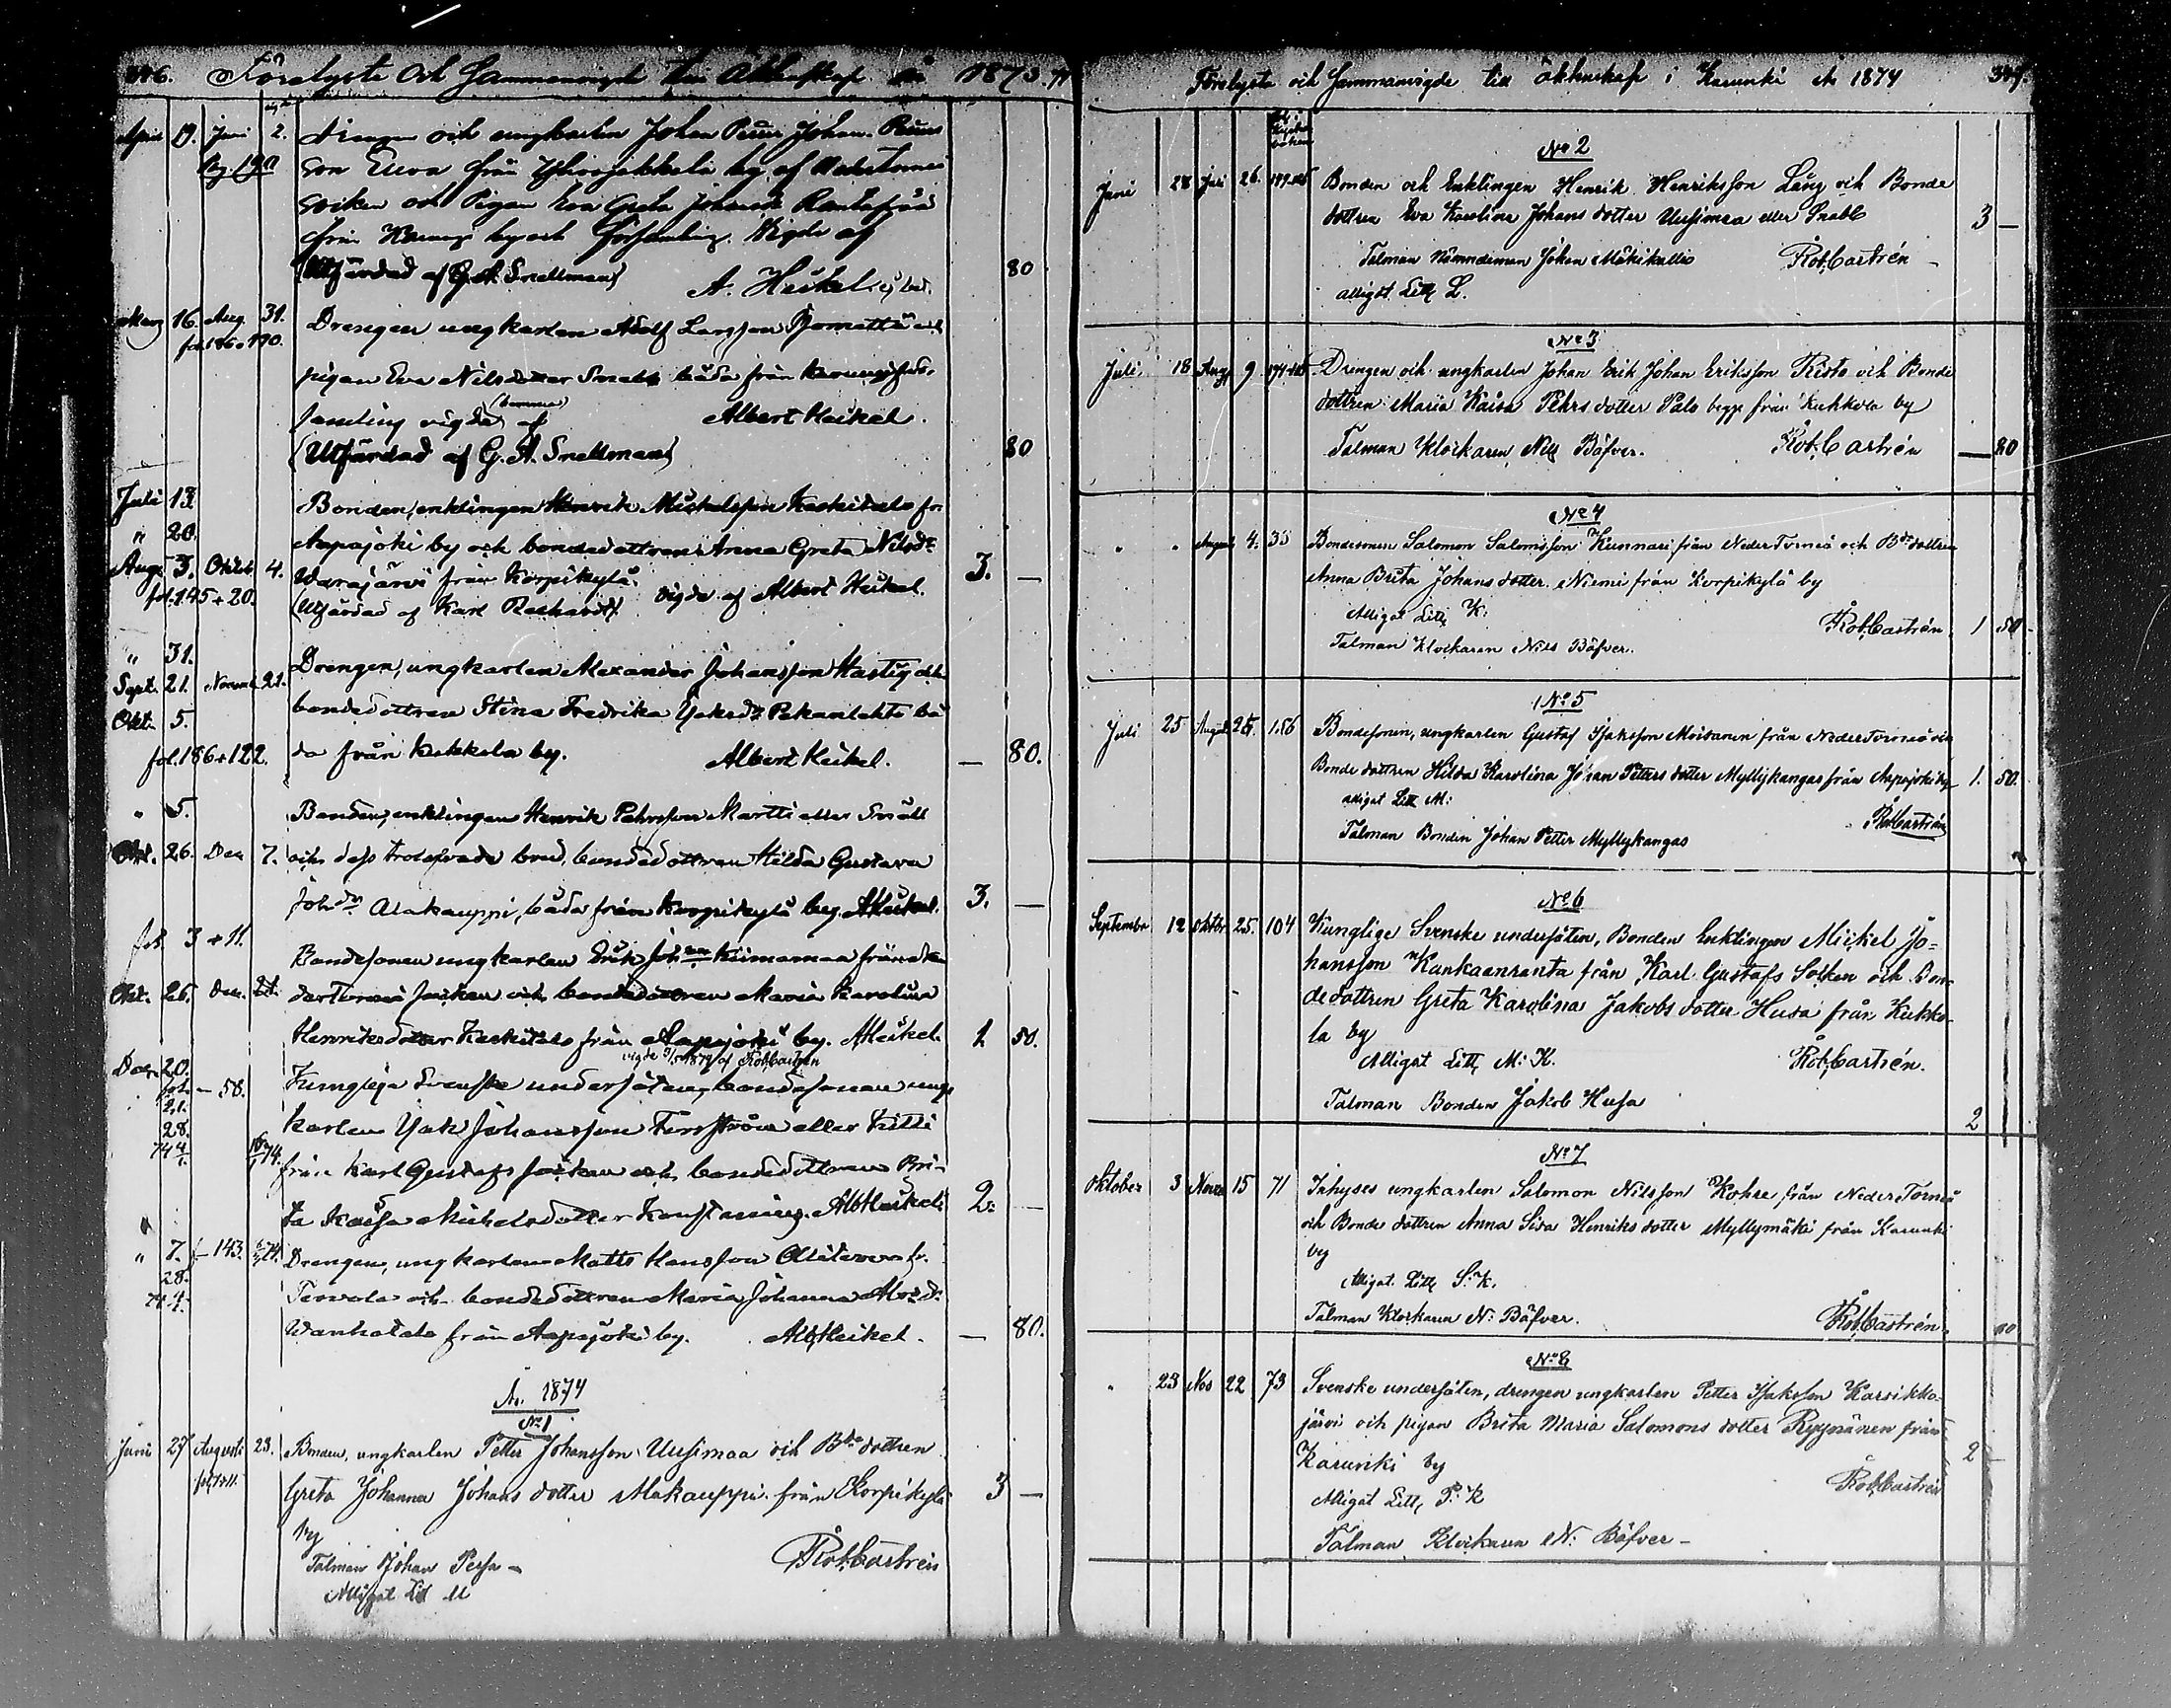 Förelyste och Sammanvigde till Äktenskap År 1873. 74
April Juni 2. Drängen och ungkarlen Johan Petter Johan Petters
son från by af Neder Torneå
socken och Pigan Eva Greta Johansdr
från Karungi by och Församling. Vigde af
(Utfärdad af G. A. Snellman) A. Heikel 80
16. Aug. 31. Drengen ungkarlen Adolf Larsson och
pigan Eva Nilsdotter båda från Karungi för-
samling vigda af Albert Heikel.
(Utfärdad af G. A. Snellman) 80
Juli 13. Bonden, enklingen Henrik Mickelsson Keskitalo fr.
" 20. Aapajoki by och bondedottren Anna Greta Nilsdr
Aug. 3. Oktob. 4. Warajärvi från Korpikylä. 3. —
fol. 145 + 20. (Utfärdad af Karl) vigde af Albert Heikel.
" 31. Drengen, ungkarlen Alexander Johansson Hastig och
Sept. 21. Novemb. 21. bondedottren Stina Fredrika
Okt. 5.
fol. 186 + 122. da från Kukkola by. Albert Heikel. — 80.
" 5. Bonden, enklingen Henrik Pehrsson Martti eller Snäll
Okt. 26. Dec 7. och dess trolofvade brud, bondedottren Hilda Gustava
Johdr Alakauppi, båda från Korpikylä by. AHeikel. 3. —
fol. 3 + 11. Bondesonen ungkarlen Erik Kiimamaa från Ne
Okt. 26. Dec. der Torneå socken och bondedottren Maria Karolina
Henriksdotter Keskitalo från Aapajoki by. AHeikel. 1 50.
vigde 1874 af Rob. Castrén
Dec. 20. Kunglige Svenske undersåten, bondesonen ung-
fol. — 58.
21.
28. karlen Isak Johansson Forsström eller Kitti
från Karl Gustafs socken och bondedottren Bri-
ta Kaisa Mickelsdotter AlbHeikel 2. —
" 7. f — 143. Drengen, ungkarlen Matts Hansson Alatervo fr.
28. Tervola och bondedottren Maria Johanna
Wanhatalo från Aapajoki by. AlbHeikel. — 80.
År 1874
No 1
Juni 27 Augusti 23. Bonden, ungkarlen Petter Johansson Uusimaa och Bde dottren
Greta Johanna Johans dotter Alakauppi från Korpikylä 3 —
by
Talman Johan Rob. Castrén
Alligat Litt U
Förelyste och Sammanvigde till äktenskap i Karunki År 1874 347.
No 2
Juni 28 Juli 26. Bonden och Enklingen Henrik Henriksson Lång och Bonde
dottren Eva Karolina Johans dotter Uusimaa eller Snabb 3 —
Talman Nämndeman Johan Mäkikallio Rob. Castrén
alligat Litt L.
No 3
Juli 18 Aug 9 Drengen och ungkarlen Johan Erik Johan Eriksson Risto och Bonde
dottren Maria Kaisa Pehrs dotter Palo begge från Kukkola by
Talman Klockaren Nils Bäfver. Rob. Castrén — 80
No 4
" " Augusti 4. 35 Bondesonen Salomon Salomsson Kunnari från Neder Torneå och Bde dottren
Anna Brita Johans dotter Niemi från Korpikylä by
Alligat Litt K: Rob. Castrén. 1 50
Talman Klockaren Nils Bäfver.
No 5
Juli 25 Augst 25. 156 Bondesonen, ungkarlen Gustaf Isaksson Moisanen från Neder Torneå och
Bonde dottren Hilda Karolina Johan Petters dotter Myllykangas från Aapajoki by 1. 50.
alligat Litt M: Rob. Castrén
Talman Bonden Johan Petter Myllykangas
No 6
Septembr 12 oktbr 25. 104 Kunglige Svenske undersåten, Bonden Enklingen Mickel Jo-
hansson Kankaanranta från Karl Gustafs Socken och Bon-
dedottren Greta Karolina Jakobs dotter Husa från Kukko-
la by
Alligat Litt M: K. Rob. Castrén.
Talman Bonden Jakob Husa 2
No 7
Oktober 3 Novr 15 71 Inhyses ungkarlen Salomon Nilsson Kohre från Neder Torneå
och Bonde dottren Anna Lisa Henriks dotter Myllymäki från Karunki
by
Alligat. Litt S: K.
Talman Klockaren N: Bäfver. Rob. Castrén. 80
No 8
" 23 Nov 22 73 Svenske undersåten, drengen ungkarlen Petter Isaksson Karsikko-
järvi och pigan Brita Maria Salomons dotter Ryynänen från
Karunki by 2 —
Alligat Litt P: K Rob. Castrén
Talman Klockaren N: Bäfver —